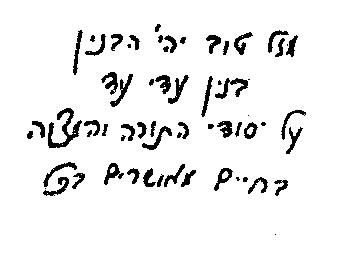 מזל טוב יהי' הבנין
בנין עדי עד
על יסודי התורה והמצוה
בחיים מאושרים בכל